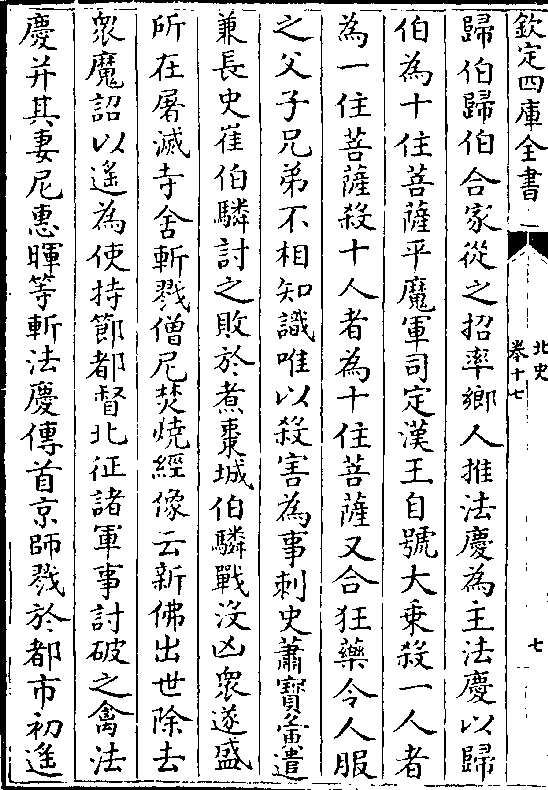 欽定四庫全書
北史
卷十七
七
歸伯歸伯合家從之招率鄉人推法慶為主法慶以歸
伯為十住菩薩平魔軍司定漢王自號大乗殺一人者
為一住菩薩殺十人者為十住菩薩又合狂藥令人服
之父子兄弟不相知識唯以殺害為事刺史蕭寶夤遣
兼長史崔伯驎討之敗於煮棗城伯驎戰没凶衆遂盛
所在屠滅寺舍斬戮僧尼焚燒經像云新佛出世除去
衆魔詔以遙為使持節都督北征諸軍事討破之禽法
慶并其妻尼惠暉等斬法慶傳首京師戮於都市初遙